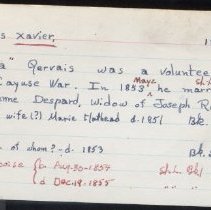 s Xavier, 1
a" Gervais was a volunteer
Cayuse War. In 1853 he mar
nne Despard, widow of Joseph R
wife(?) Marie Flathead d. 1851 Bk.
of whom? - d. 1853 Bk.
b. Aug. 30 - 1854
d Dec. 19 - 1855